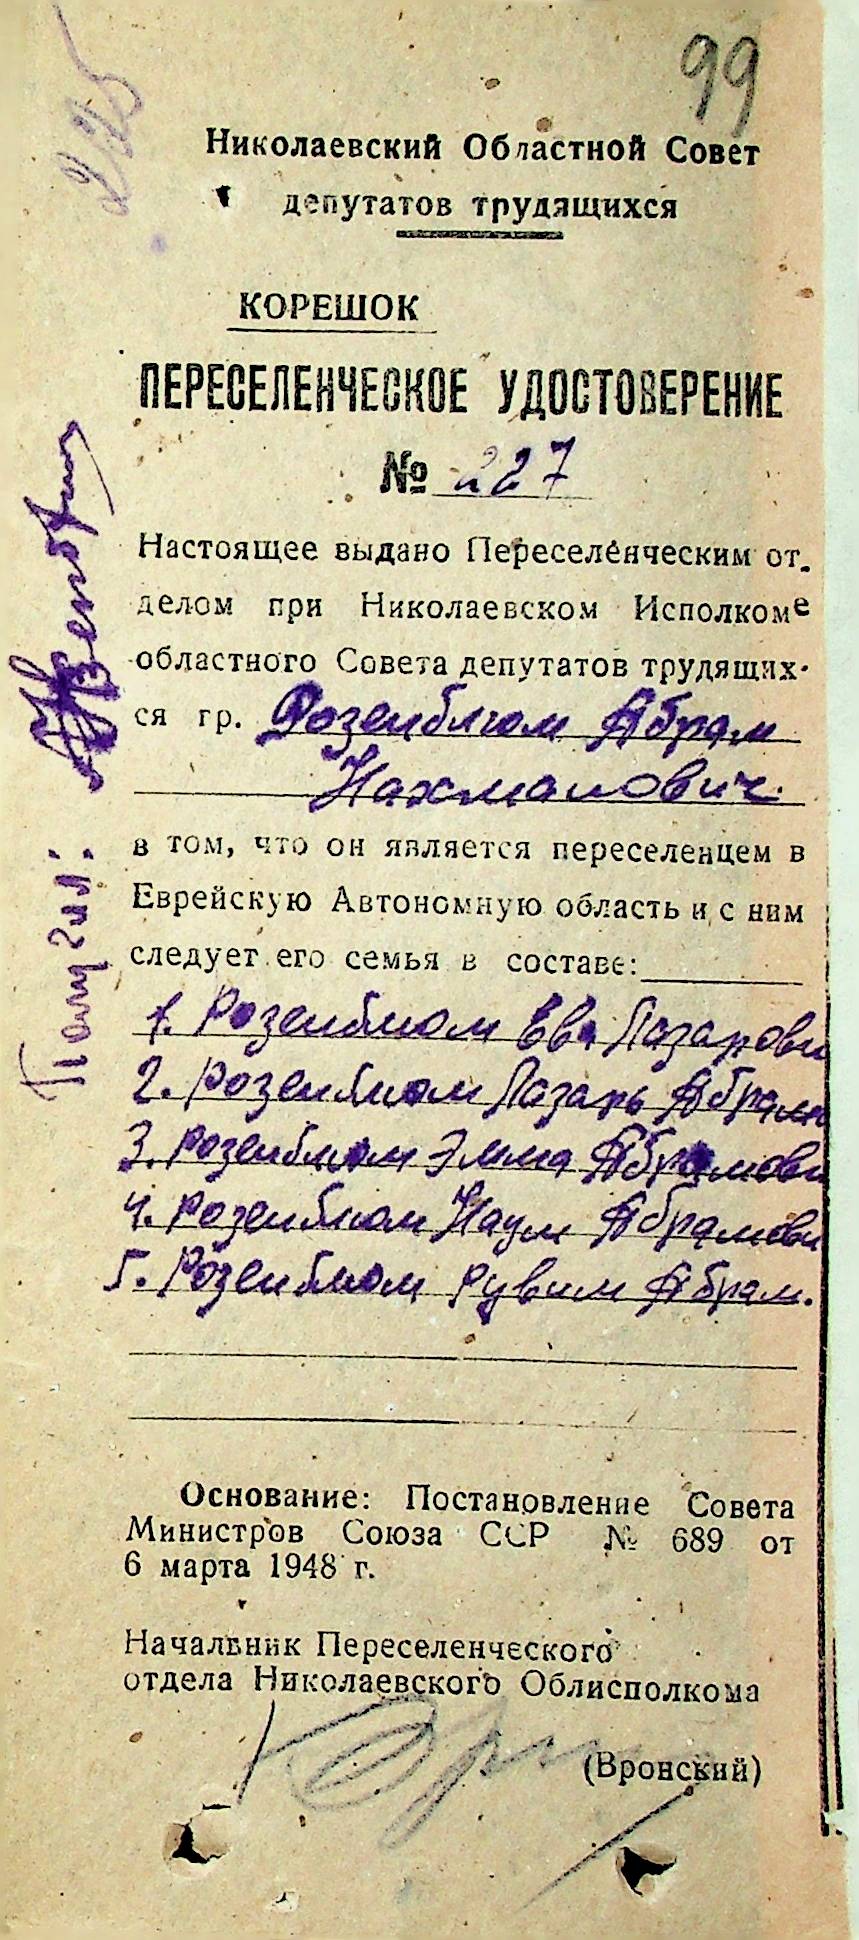 99
225
Николаевский Областной Совет
депутатов трудящихся
КОРЕШОК
ПЕРЕСЕЛЕНЧЕСКОЕ УДОСТОВЕРЕНИЕ
№ 227
Настоящее выдано Переселенческим от.
делом при Николаевском Исполкоме
областного Совета депутатов трудящих-
ся гр. Розенблюм Абрам
Нахманович.
в том, что он является переселенцем в
Еврейскую Автономную область и с ним
следует его семья в составе:
1. Розенблюм Ева Лазарови
2. Розенблюм Лазарь Абрам
3. Розенблюм Эмма Абрамови
4. Розенблюм Наум Абрамови
5. Розенблюм Рувим Абрам.
Основание: Постановление Совета
Министров Союза ССР № 689 от
6 марта 1948 г.
Начальник Переселенческого
отдела Николаевского Облисполкома
(Вронский)
Получил: